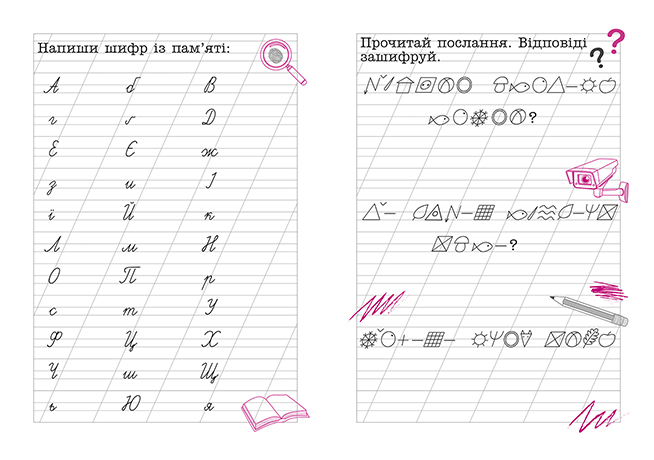 Напиши шифр із пам'яті:
А б В
г ґ Д
Е Є ж
з и І
ї Й к
Л м Н
О П р
с т У
Ф Ц Х
Ч ш Щ
ь Ю я
Прочитай послання. Відповіді
зашифруй.
?
?